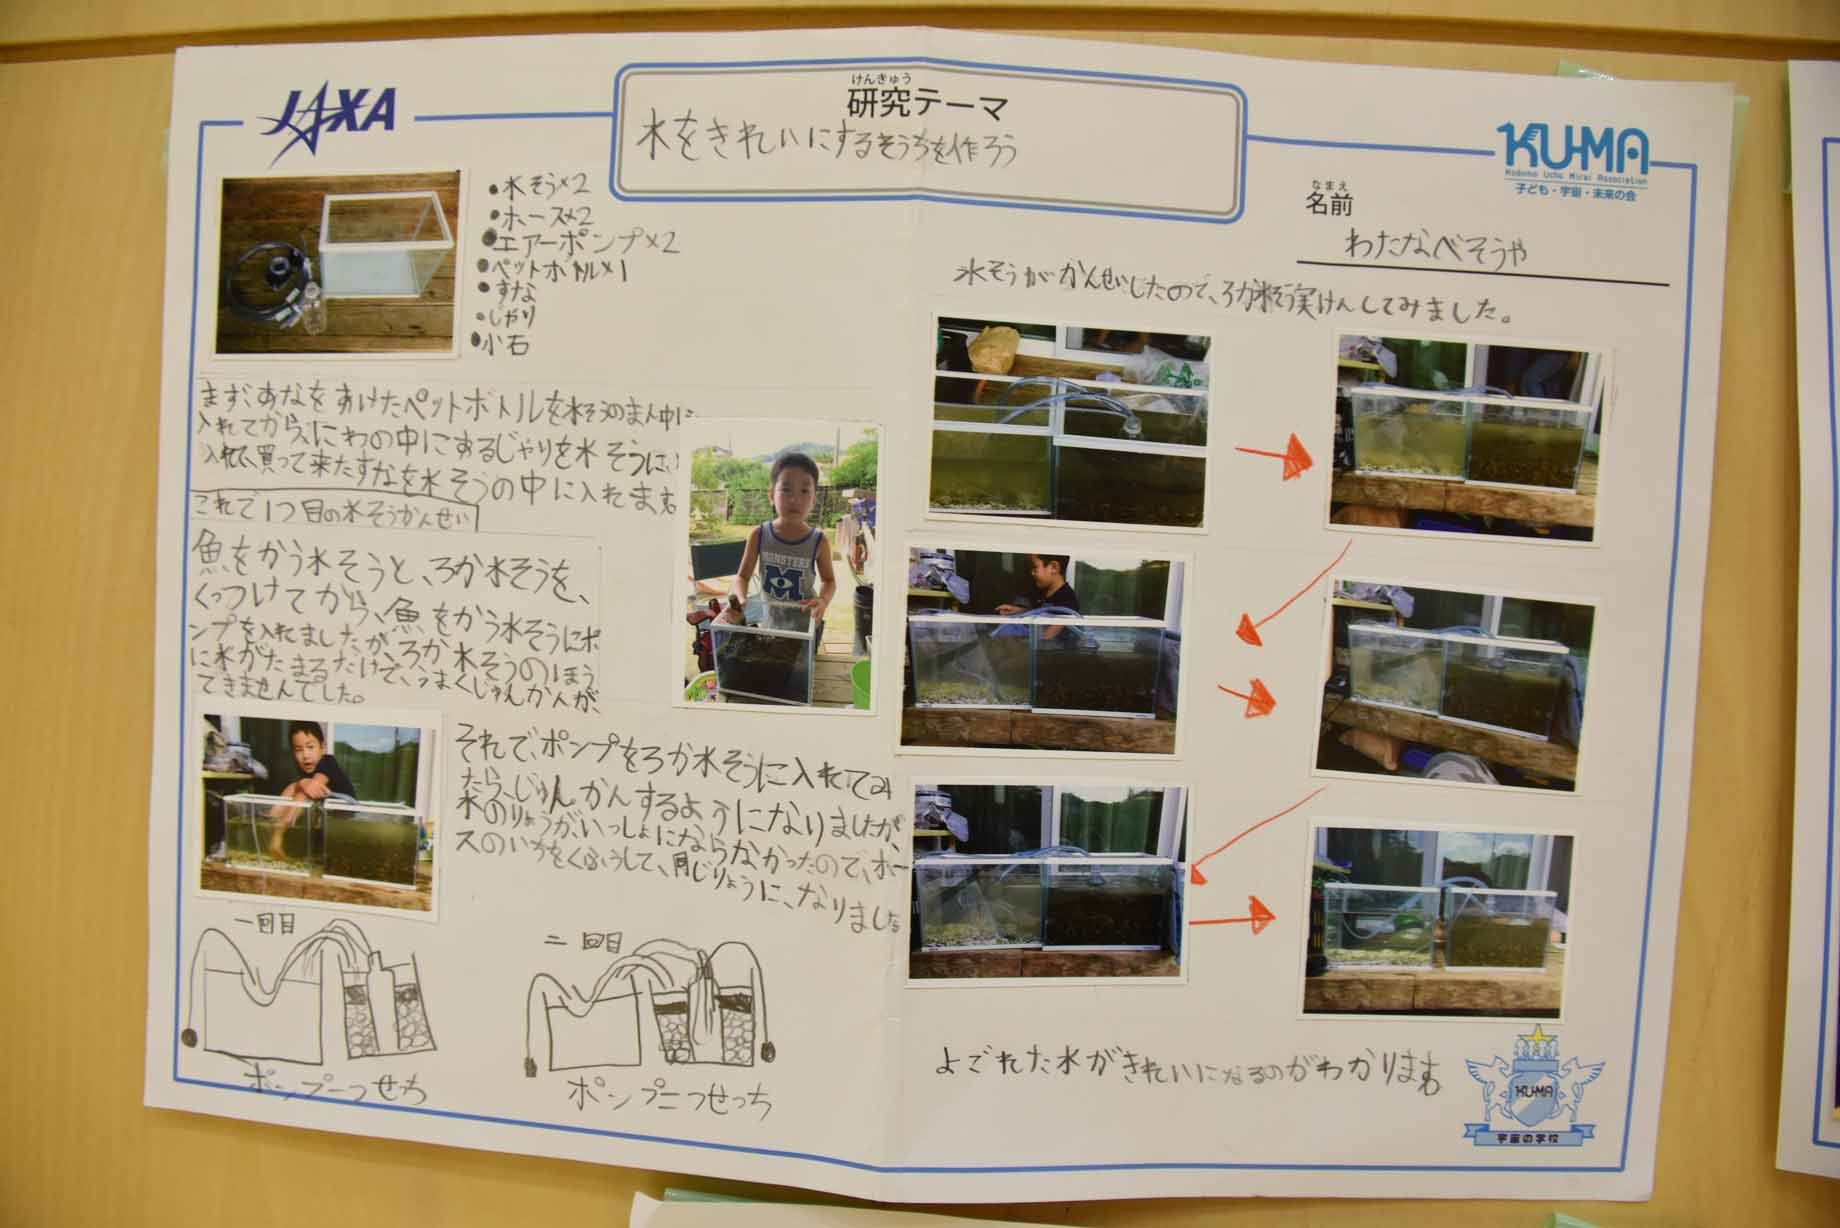 JAXA
けんきゅう
研究テーマ
水をきれいにするそうちを作ろう
KU-MA
Kodomo Uchu Mirai Association
子ども・宇宙・未来の会
なまえ
名前
わたなべそうや
・水そう×2
・ホース×2
・エアーポンプ×2
・ペットボトル×1
・すな
・じゃり
・小石
まず、あなをあけたペットボトルを水そうのまん中に
入れてから、にわの中にあるじゃりを水そうに
入れて、買って来たすなを水そうの中に入れます
これで1つ目の水そうかんせい
魚をかう水そうと、ろか水そうを、
くっつけてから、魚をかう水そうにポ
ンプを入れましたが、ろか水そうのほう
に水がたまるだけで、うまくじゅんかんが、
できませんでした。
MONSTERS
それで、ポンプをろか水そうに入れてみ
たら、じゅんかんするようになりましたが、
水のりょうが、いっしょにならなかったので、ホー
スのいちをくふうして、同じりょうに、なりました
一回目
ポンプ一つせっち
二回目
ポンプ二つせっち
水そうがかんせいしたので、ろか水そう実けんしてみました。
よごれた水がきれいになるのがわかります
KU-MA
宇宙の学校